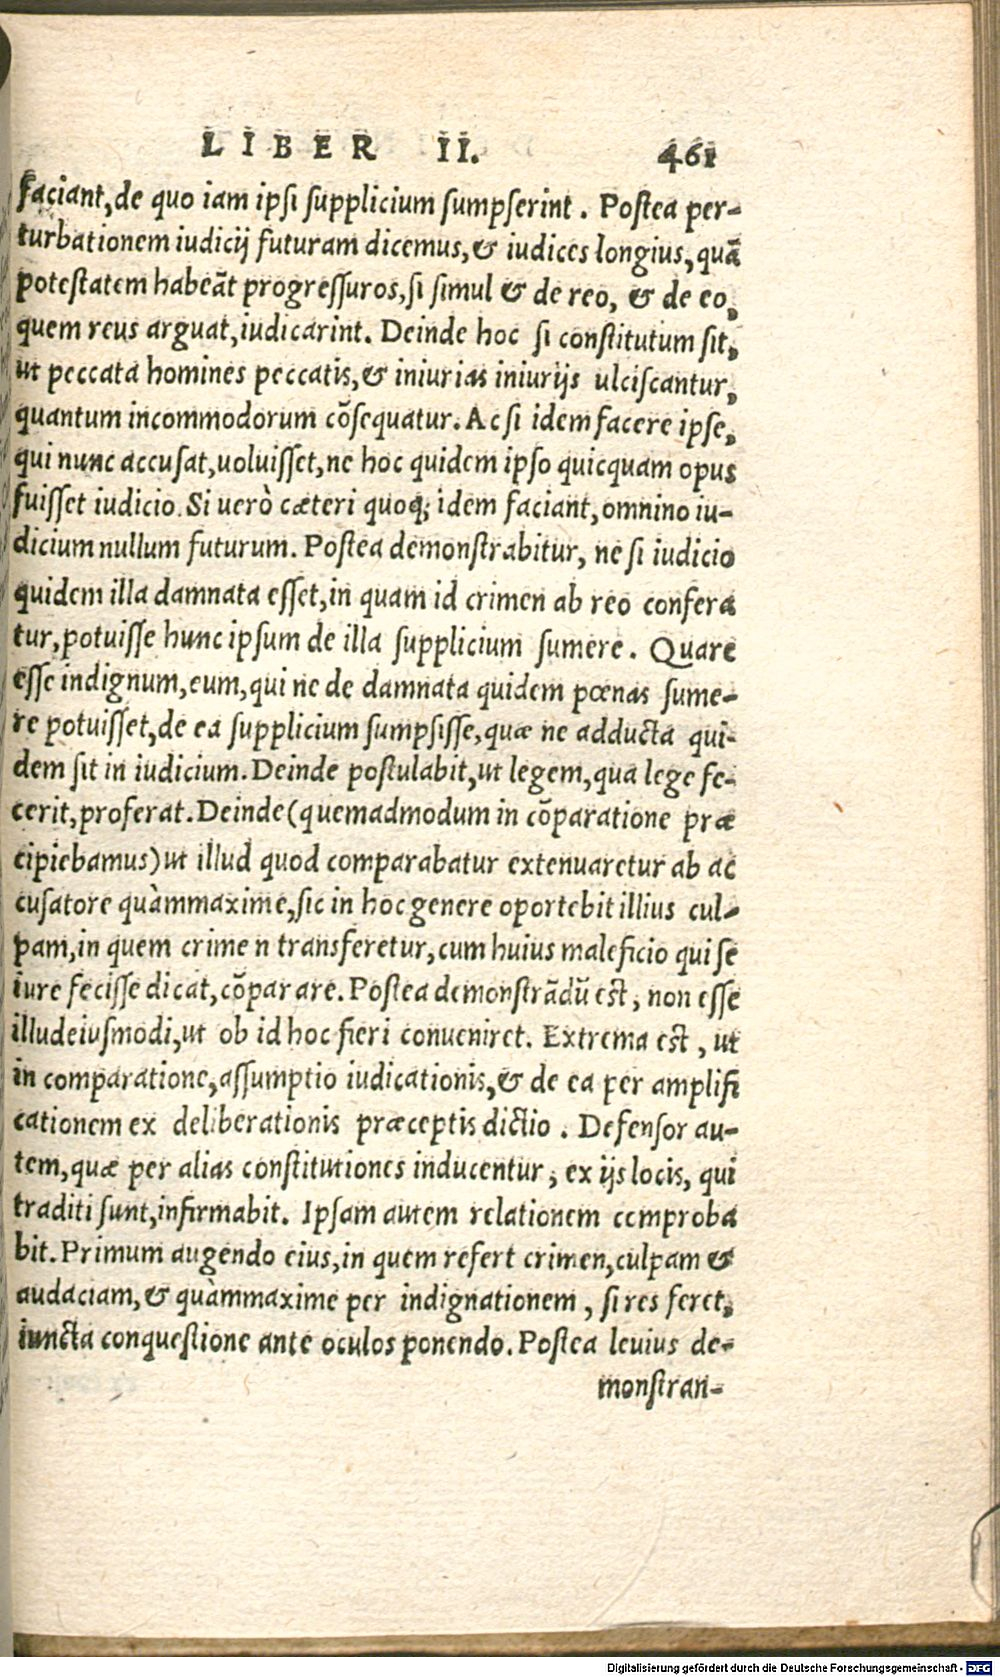 LIBER II. 461
faciant, de quo iam ipsi supplicium sumpserint. Postea per-
turbationem iudicij futuram dicemus, & iudices longius, quã
potestatem habeãt progressuros, si simul & de reo, & de eo,
quem reus arguat, iudicarint. Deinde hoc si constitutum sit,
ut peccata homines peccatis, & iniurias iniurijs ulciscantur,
quantum incommodorum cõsequatur. Ac si idem facere ipse,
qui nunc accusat, uoluisset, ne hoc quidem ipso quicquam opus
fuisset iudicio. Si uerò cæteri quoq; idem faciant, omnino iu-
dicium nullum futurum. Postea demonstrabitur, ne si iudicio
quidem illa damnata esset, in quam id crimen ab reo confera
tur, potuisse hunc ipsum de illa supplicium sumere. Quare
esse indignum, eum, qui ne de damnata quidem pœnas sume-
re potuisset, de ea supplicium sumpsisse, quæ ne adducta qui-
dem sit in iudicium. Deinde postulabit, ut legem, qua lege fe-
cerit, proferat. Deinde (quemadmodum in cõparatione præ
cipiebamus) ut illud quod comparabatur extenuaretur ab ac
cusatore quàmmaxime, sic in hoc genere oportebit illius cul-
pam, in quem crime n transferetur, cum huius maleficio qui se
iure fecisse dicat, cõparare. Postea demonstrãdũ est, non esse
illud eiusmodi, ut ob id hoc fieri conueniret. Extrema est, ut
in comparatione, assumptio iudicationis, & de ea per amplifi
cationem ex deliberationis præceptis dictio. Defensor au-
tem, quæ per alias constitutiones inducentur, ex ijs locis, qui
traditi sunt, infirmabit. Ipsam autem relationem comproba
bit. Primum augendo eius, in quem refert crimen, culpam &
audaciam, & quàmmaxime per indignationem, si res feret,
iuncta conquestione ante oculos ponendo. Postea levius de-
monstran-
Digitalisierung gefördert durch die Deutsche Forschungsgemeinschaft - DFG